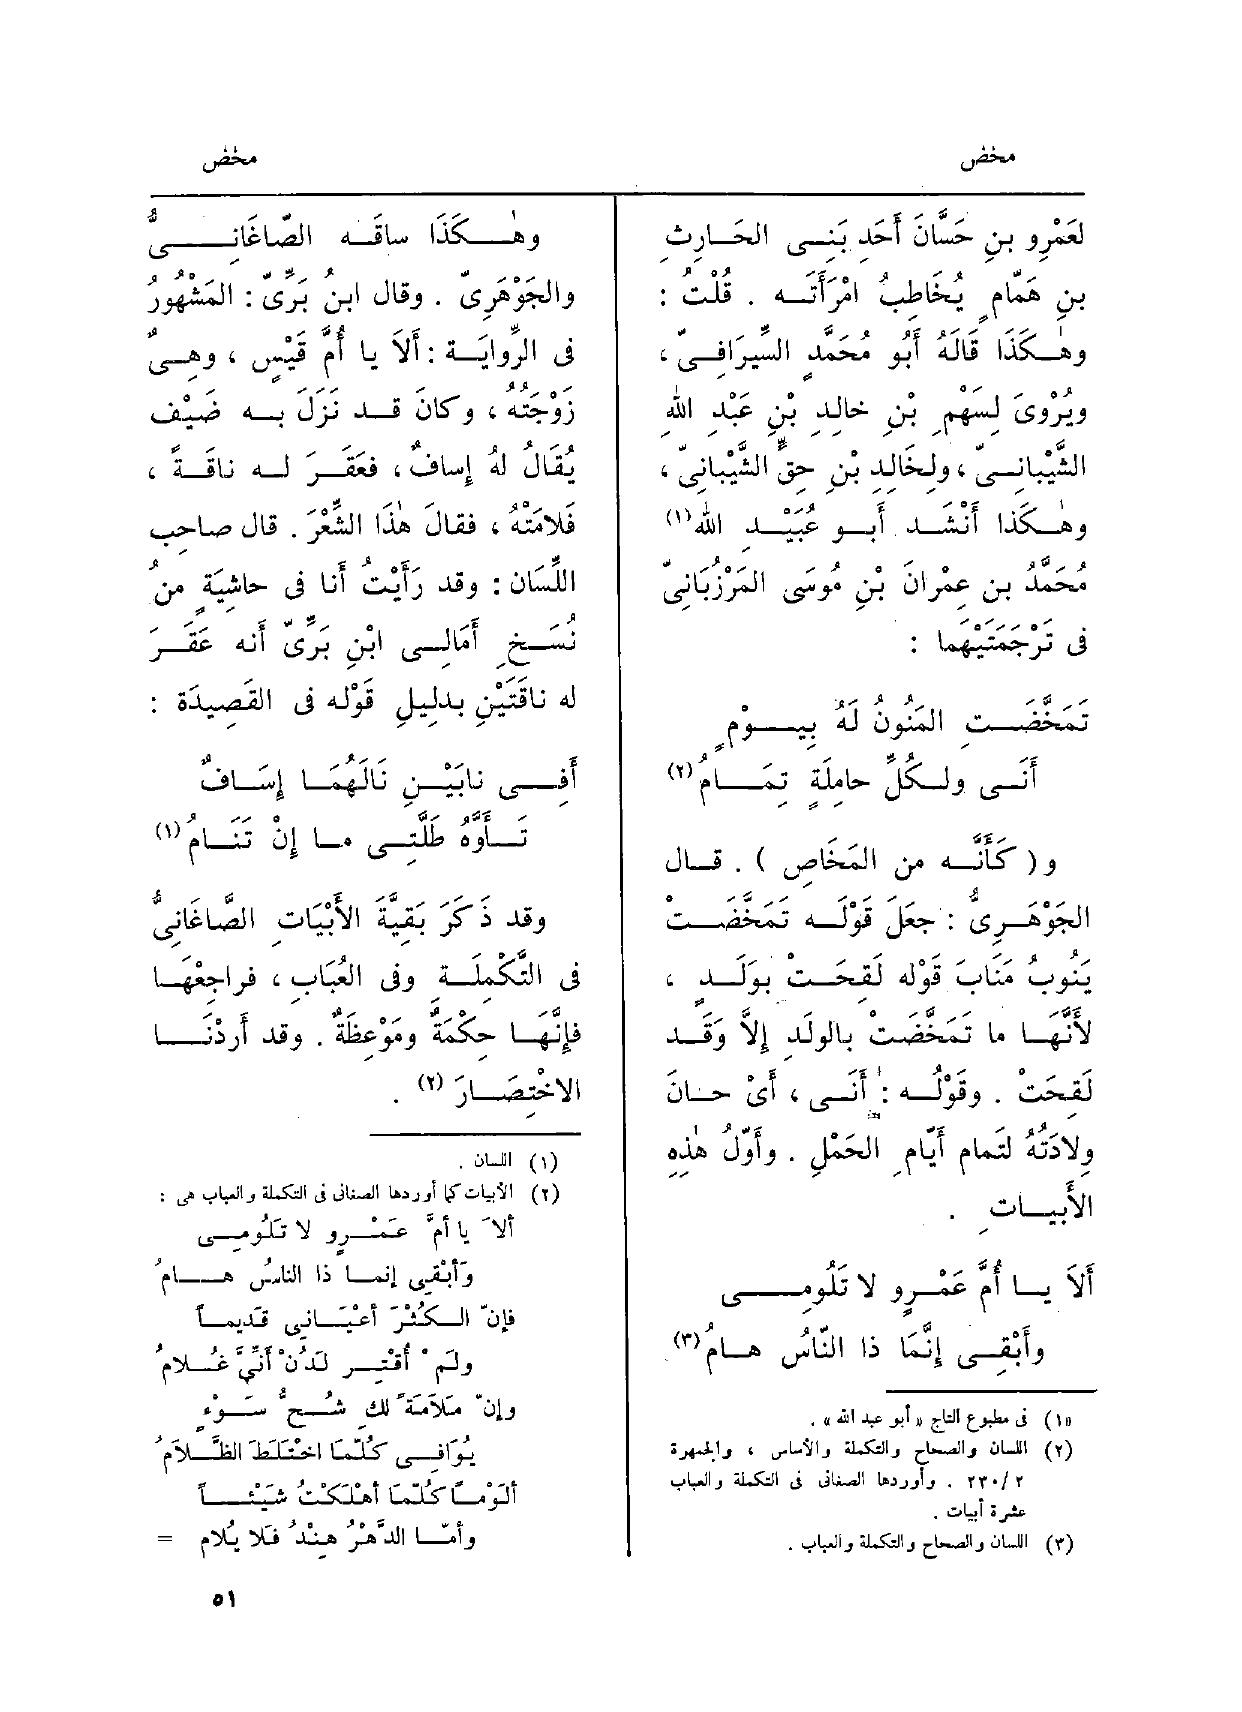 مخض
مخض
لعَمْرِو بنِ حَسَّانَ أَحَدِ بَنِى الحَارِثِ
بنِ هَمّامٍ يُخَاطِبُ امْرَأَتَه . قُلْتُ :
وهٰكَذَا قَالَهُ أَبُو مُحَمَّدٍ السِّيرَافِىّ ،
ويُرْوَى لِسَهْمِ بْنِ خالِدِ بْنِ عَبْدِ اللهِ
الشَّيْبَانِىّ ، ولِخَالِدِ بْنِ حِقٍّ الشَّيْبانِىّ ،
وهٰكَذا أَنْشَد أَبو عُبَيْدِ الله(١)
مُحَمَّدُ بن عِمْرانَ بْنِ مُوسَى المَرْزُبَانِىّ
فى تَرْجَمَتَيْهِما :
تَمَخَّضَتِ المَنُونُ لَهُ بِيَوْمٍ
أَنَى ولِكُلِّ حامِلَةٍ تِمَامُ(٢)
و( كَأَنَّه من المَخَاضِ ) . قال
الجَوْهَرِىُّ : جعَلَ قَوْلَه تَمَخَّضَتْ
يَنُوبُ مَنَابَ قَوْلِه لَقِحَتْ بوَلَدٍ ،
لأَنَّهَا ما تَمَخَّضَت بالوَلَدِ إِلاَّ وَقَد
لَقِحَتْ . وقَوْلُه : أَنَى ، أَىْ حانَ
وِلادَتُهُ لتَمام أَيّامِ الحَمْلِ . وأَوّلُ هٰذِهِ
الأَبْيَاتِ .
أَلاَ يا أُمَّ عَمْرٍو لا تَلُومِى
وأَبْقِى إِنَّمَا ذا النَّاسُ هامُ(٣)
(١) فى مطبوع التاج « أبو عبد الله » .
(٢) اللسان والصحاح والتكملة والأساس ، والجمهرة
٢٣٠/٢ . وأوردها الصغانى فى التكملة والعباب
عشرة أبيات .
(٣) اللسان والصحاح والتكملة والعباب .
وهٰكَذَا ساقَه الصّاغَانِىُّ
والجَوْهَرِىّ . وقال ابنُ بَرِّىّ : المَشْهُورُ
فى الرِّوايَة : أَلاَ يا أُمَّ قَيْسٍ ، وهى
زَوْجَتُهُ ، وكانَ قد نَزَلَ به ضَيْف
يُقَالُ لَهُ إِسافٌ ، فعَقَرَ له ناقَةً ،
فَلامَتْهُ ، فقالَ هٰذا الشِّعْرَ . قال صاحِب
اللِّسَان : وقد رَأَيْتُ أَنا فى حاشِيَةٍ مِنْ
نُسَخِ أَمَالِى ابْنِ بَرِّىّ أَنه عَقَرَ
له ناقَتَيْنِ بدَلِيلِ قَوْلِه فى القَصِيدَة :
أَفِى نابَيْنِ نَالَهُمَا إِسَافٌ
تَأَوَّهُ طَلَّتِى ما إِنْ تَنَامُ(١)
وقد ذَكَرَ بَقِيَّةَ الأَبْيَاتِ الصَّاغَانِىُّ
فى التَّكْمِلَة وفى العُبَابِ ، فراجِعْهَا
فإِنَّهَا حِكْمَةٌ ومَوْعِظَةٌ . وقد أَرَدْنَا
الاخْتِصَارَ (٢) .
(١) اللسان .
(٢) الأبيات كما أوردها الصغانى فى التكملة والعباب هى :
ألاَ يا أمَّ عَمْرٍو لا تَلُومِى
وَأبْقِى إنما ذا الناسُ هامُ
فإنّ الكُثْرَ أعْيَانِى قَدِيماً
ولَمْ أقْتِر لَدُنْ أنِّى غُلامُ
وإنْ مَلامَةً لكِ شُحُّ سَوْءٍ
يُوَافِى كُلَّمَا اخْتَلَطَ الظَّلامُ
ألَوْماً كُلَّمَا أهْلَكْتُ شَيْئاً
وأمّا الدَّهْرُ هِنْدُ فَلا يُلام =
٥١